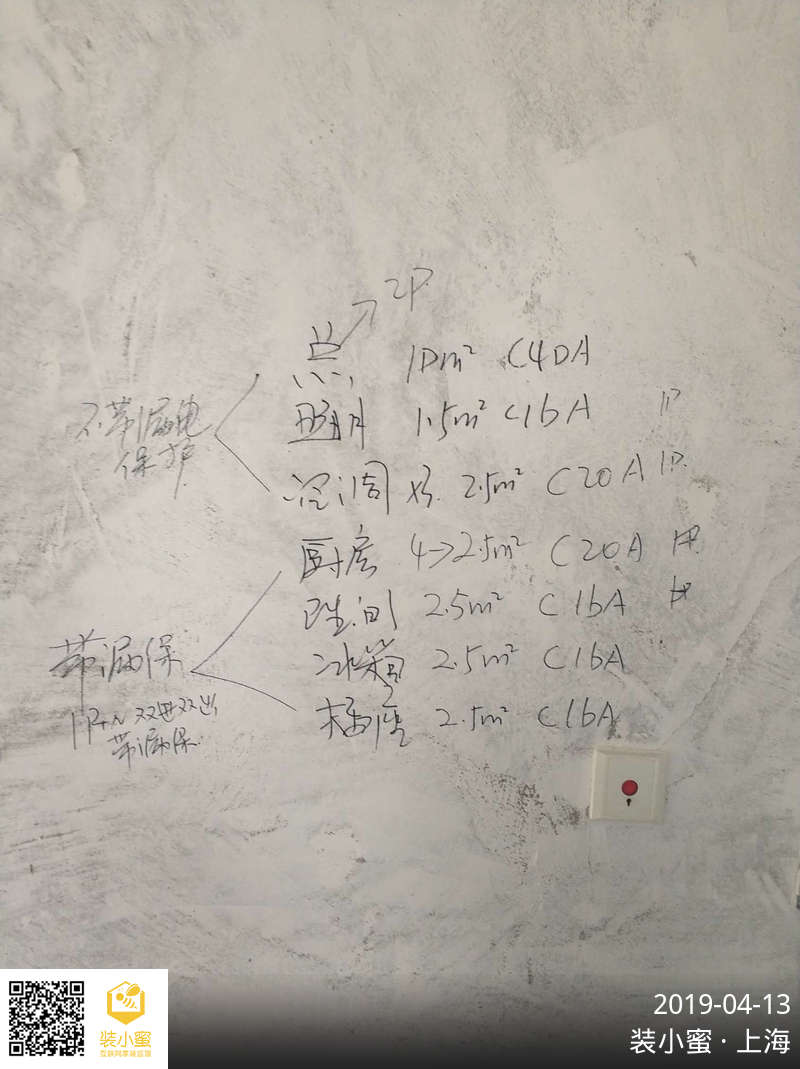 2P
总 10m² C40A
不带漏电保护
照明 1.5m² C16A 1P
空调 x3. 2.5m² C20A 1P.
厨房 4→2.5m² C20A
卫生间 2.5m² C16A
带漏保
冰箱 2.5m² C16A
插座 2.5m² C16A
1P+N 双进双出
带漏保
装小蜜
2019-04-13
装小蜜 · 上海